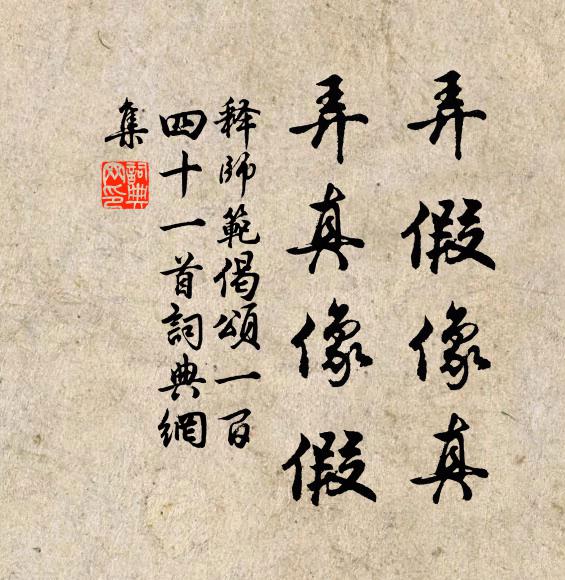 弄假像真
弄真像假
释師範偈頌一百
四十一首詞典網
集
詞典
网印